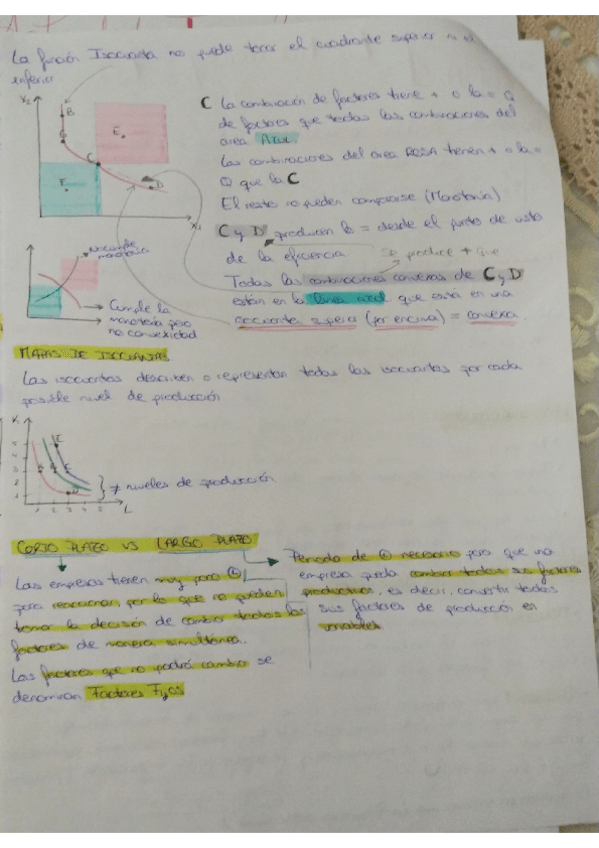 La función Isocuanta no puede tocar el cuadrante superior ni el
inferior
X₂
B
G
E.
C
F.
D
X₁
C La combinación de factores tiene + o la = Q
de factores que todas las combinaciones del
area Azul
Las combinaciones del area ROSA tienen + o la =
Q que la C
El resto no pueden compararse (Monotonía)
C y D producen lo = desde el punto de vista
de la eficiencia
Se produce + que
Todas las combinaciones convexas de C y D
están en la línea azul que está en una
isocuanta superior (por encima) = convexa.
No cumple
monotonía
Cumple la
monotonía pero
no convexidad
MAPAS DE ISOCUANTAS
Las isocuantas describen o representan todas las isocuantas por cada
posible nivel de producción
K
5
4
3
2
1
1 2 3 4 5 L
≠ niveles de producción
CORTO PLAZO VS LARGO PLAZO
Las empresas tienen muy poco t
para reaccionar, por lo que no pueden
tomar la decisión de cambiar todos los
factores de manera simultánea.
Los factores que no podrá cambiar se
denominan Factores Fijos
Periodo de t necesario para que una
empresa pueda cambiar todos sus factores
productivos, es decir, convertir todos
sus factores de producción en
variables